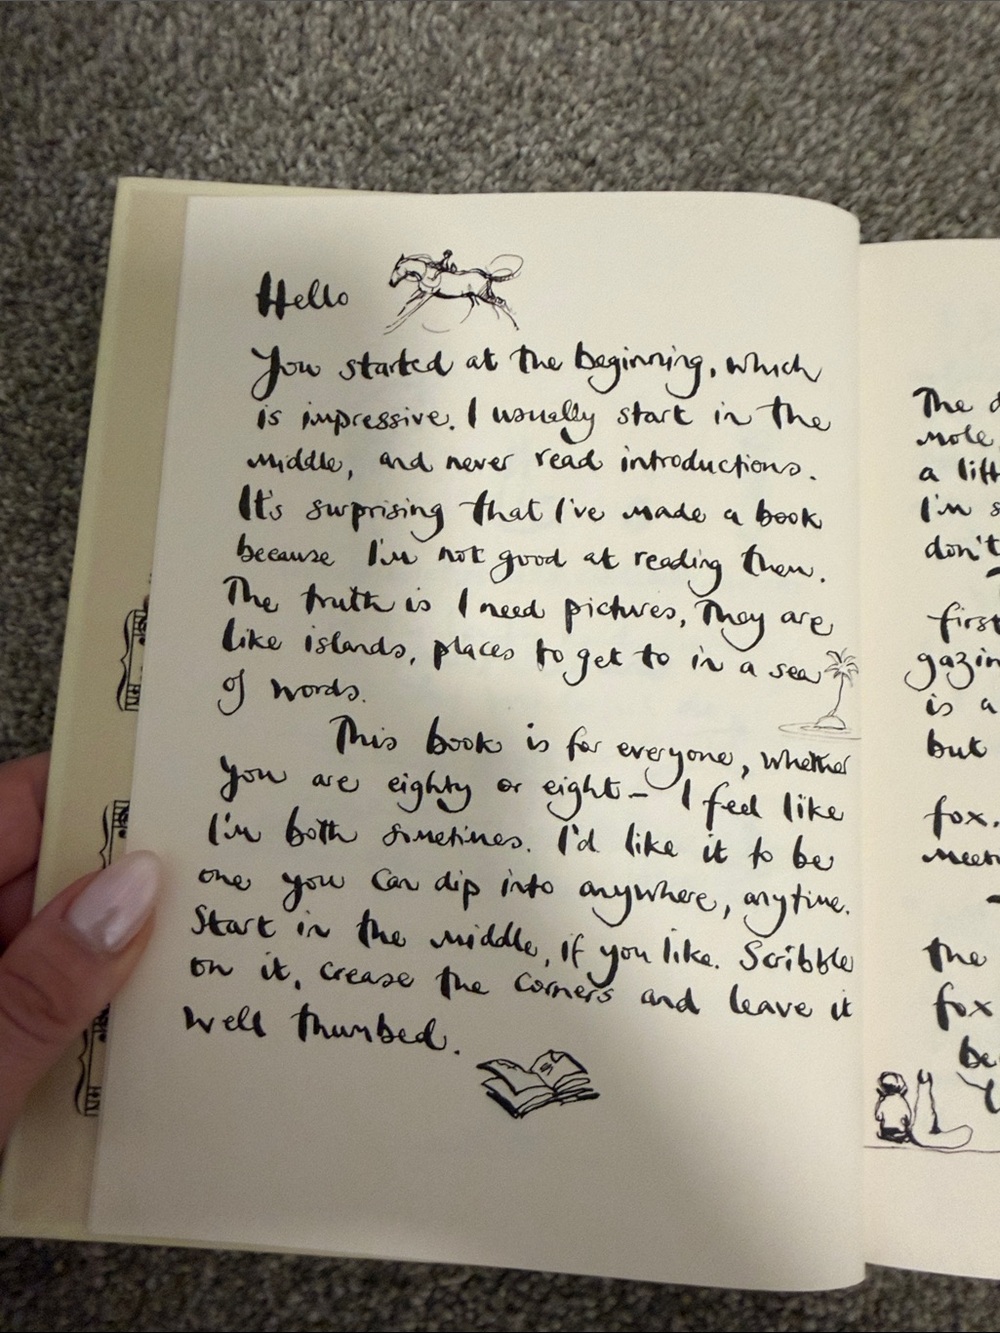 Hello
You started at the beginning, which
is impressive. I usually start in the
middle, and never read introductions.
It's surprising that I've made a book
because I'm not good at reading them.
The truth is I need pictures, They are
like islands, places to get to in a sea
of words.
This book is for everyone, whether
you are eighty or eight – I feel like
I'm both sometimes. I'd like it to be
one you can dip into anywhere, anytime.
Start in the middle, if you like. Scribble
on it, crease the corners and leave it
well thumbed.
The
mole
a
I'm
don't
first
is a
but
fox.
the
fox